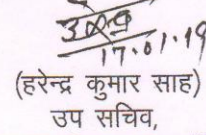 17.01.19
(हरेन्द्र कुमार साह)
उप सचिव,